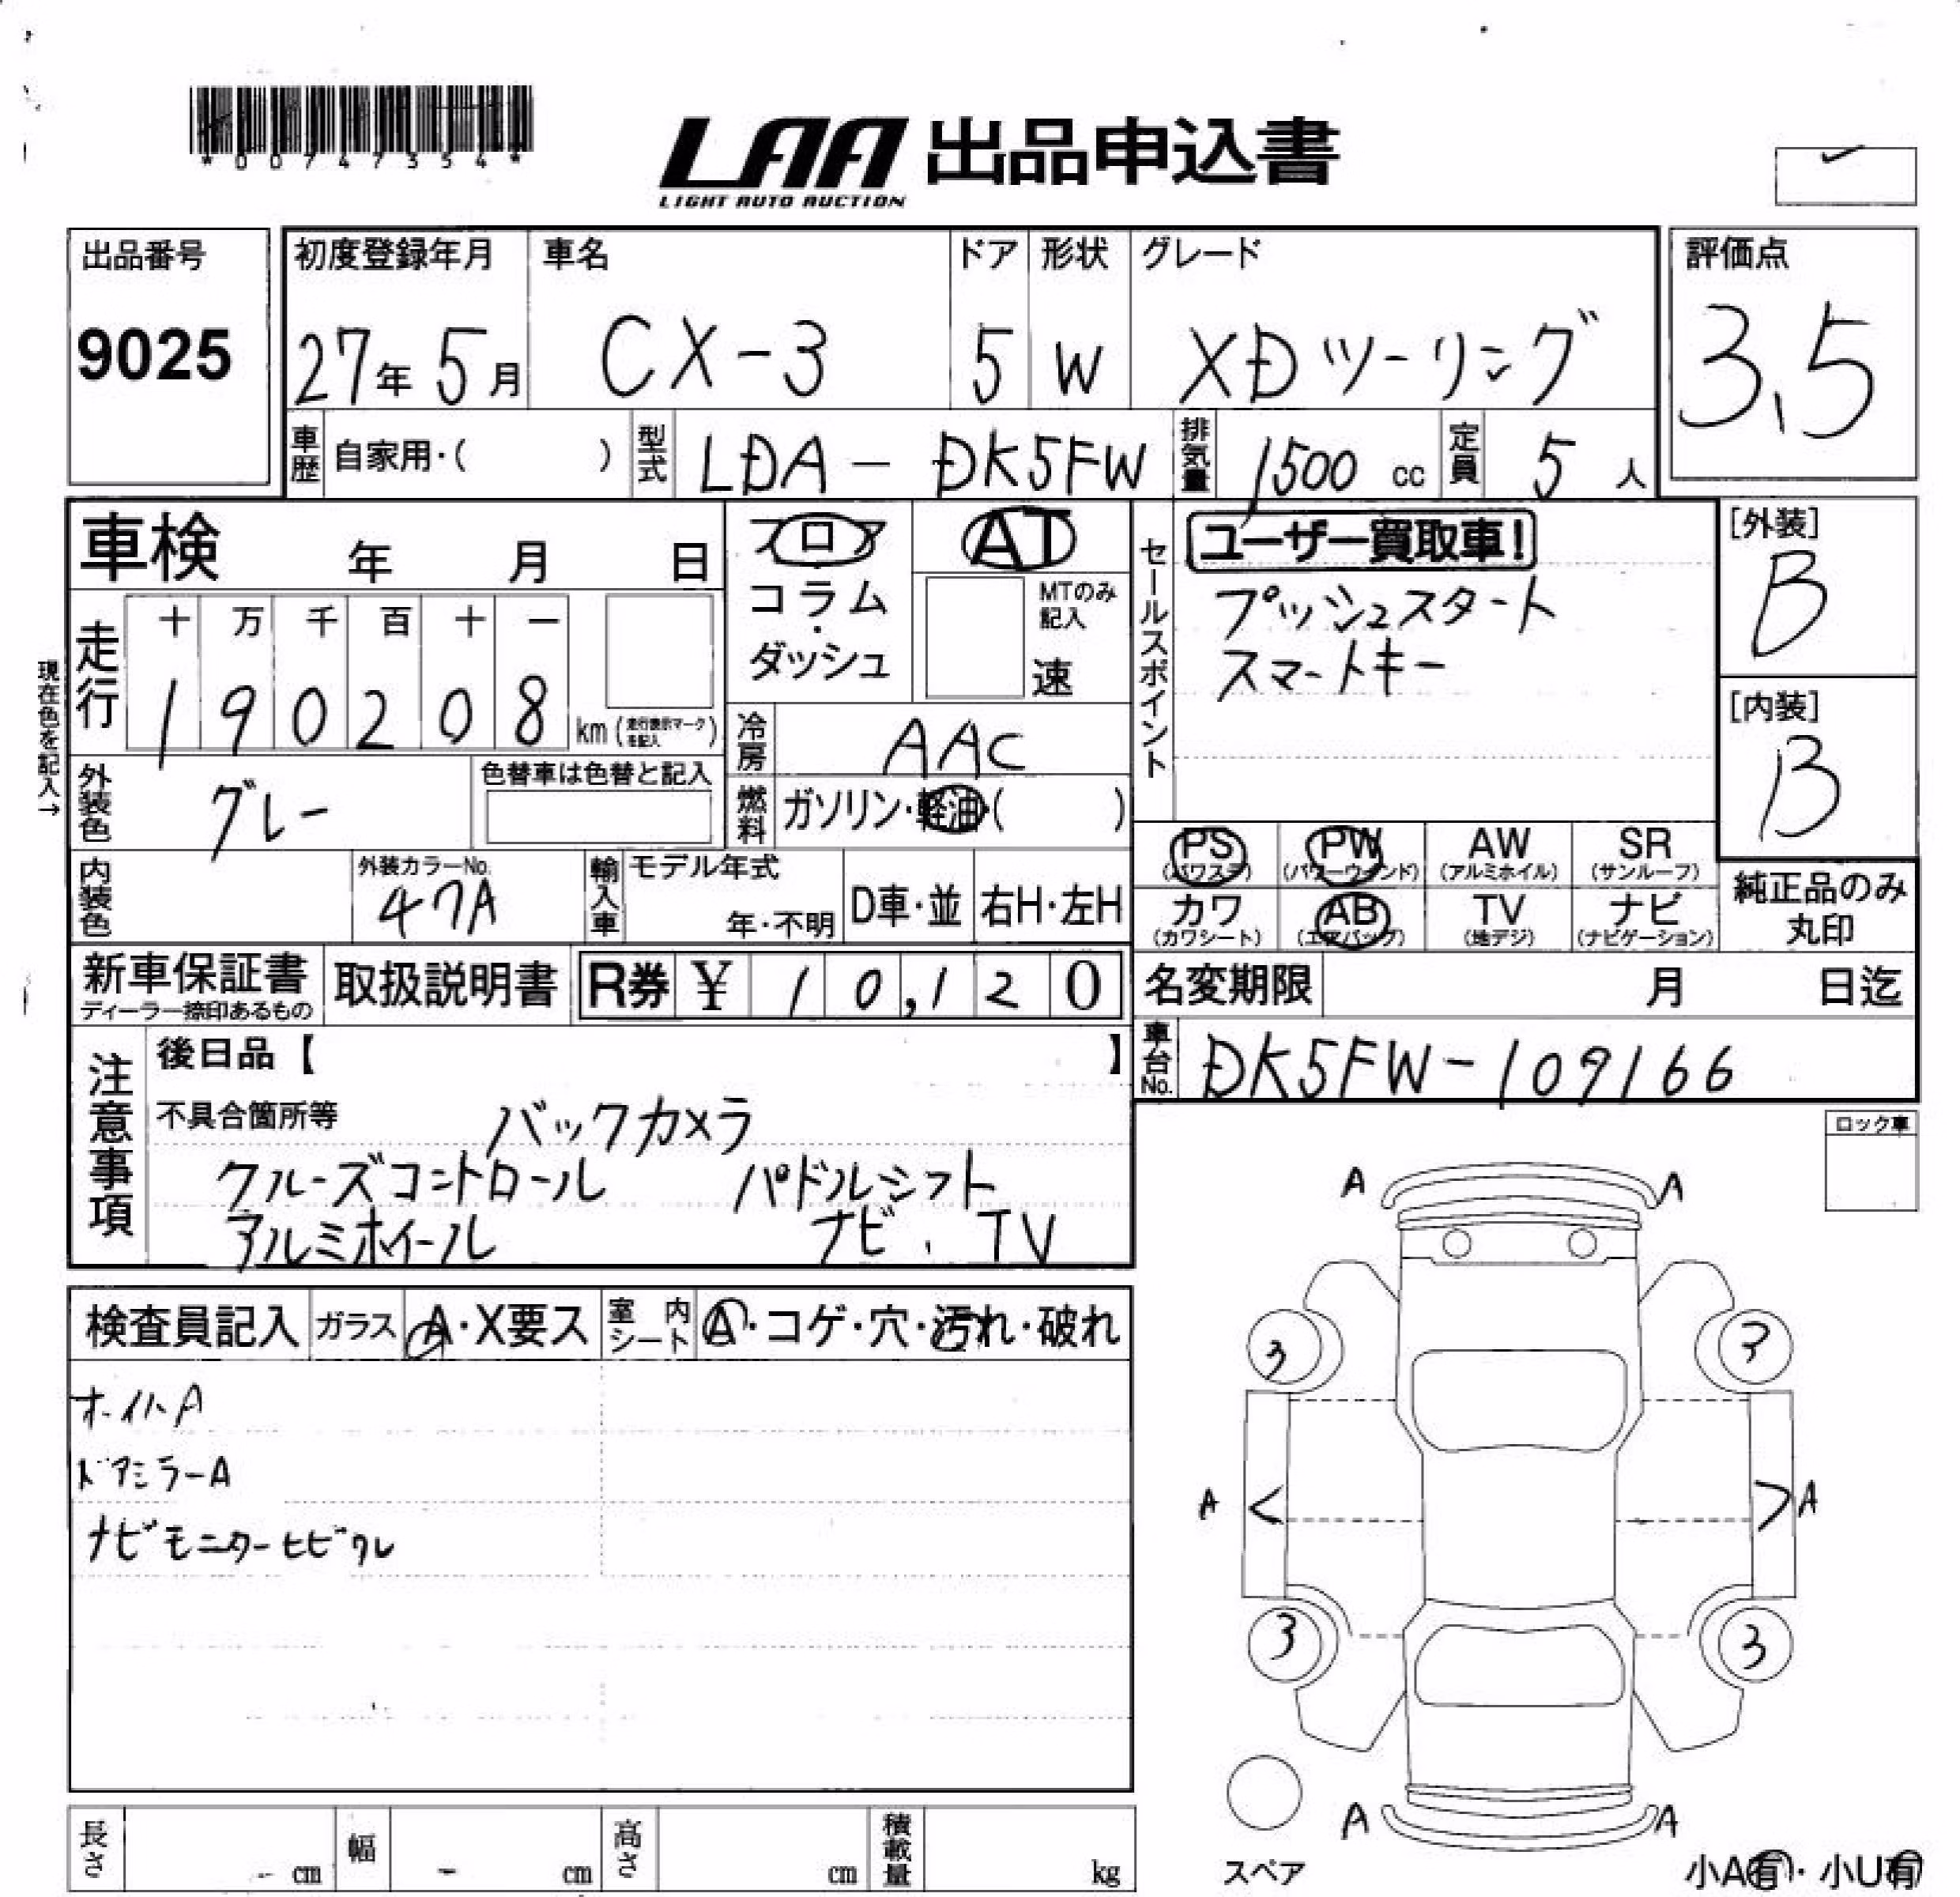 *00747354*
LAA 出品申込書
LIGHT AUTO AUCTION
出品番号
9025
初度登録年月
27年5月
車名
CX-3
ドア
5
形状
W
グレード
XDツーリング
評価点
3.5
車歴 自家用・( )
型式 LDA-DK5FW
排気量 1500 cc
定員 5 人
車検 年 月 日
フロア
コラム
・
ダッシュ
AT
MTのみ
記入
速
セールスポイント
ユーザー買取車!
プッシュスタート
スマートキー
[外装]
B
[内装]
B
現在色を記入→
走行
十 万 千 百 十 一
1 9 0 2 0 8 km (走行表示マークを記入)
冷房 AAC
外装色 グレー
色替車は色替と記入
燃料 ガソリン・軽油・( )
PS (パワステ)
PW (パワーウインド)
AW (アルミホイル)
SR (サンルーフ)
カワ (カワシート)
AB (エアバッグ)
TV (地デジ)
ナビ (ナビゲーション)
純正品のみ
丸印
内装色
外装カラーNo.
47A
輸入車
モデル年式
年・不明
D車・並
右H・左H
新車保証書
ディーラー捺印あるもの
取扱説明書
R券 ¥ 10,120
名変期限 月 日迄
車台No. DK5FW-109166
注意事項
後日品【 】
不具合箇所等 バックカメラ
クルーズコントロール パドルシフト
アルミホイール ナビ、TV
ロック車
検査員記入
ガラス A・X要ス
室内シート A・コゲ・穴・汚れ・破れ
ホイルA
ドアミラーA
ナビモニターヒビワレ
A A
3 3
A < > A
3 3
A A
スペア
小A有・小U有
長さ cm
幅 cm
高さ cm
積載量 kg